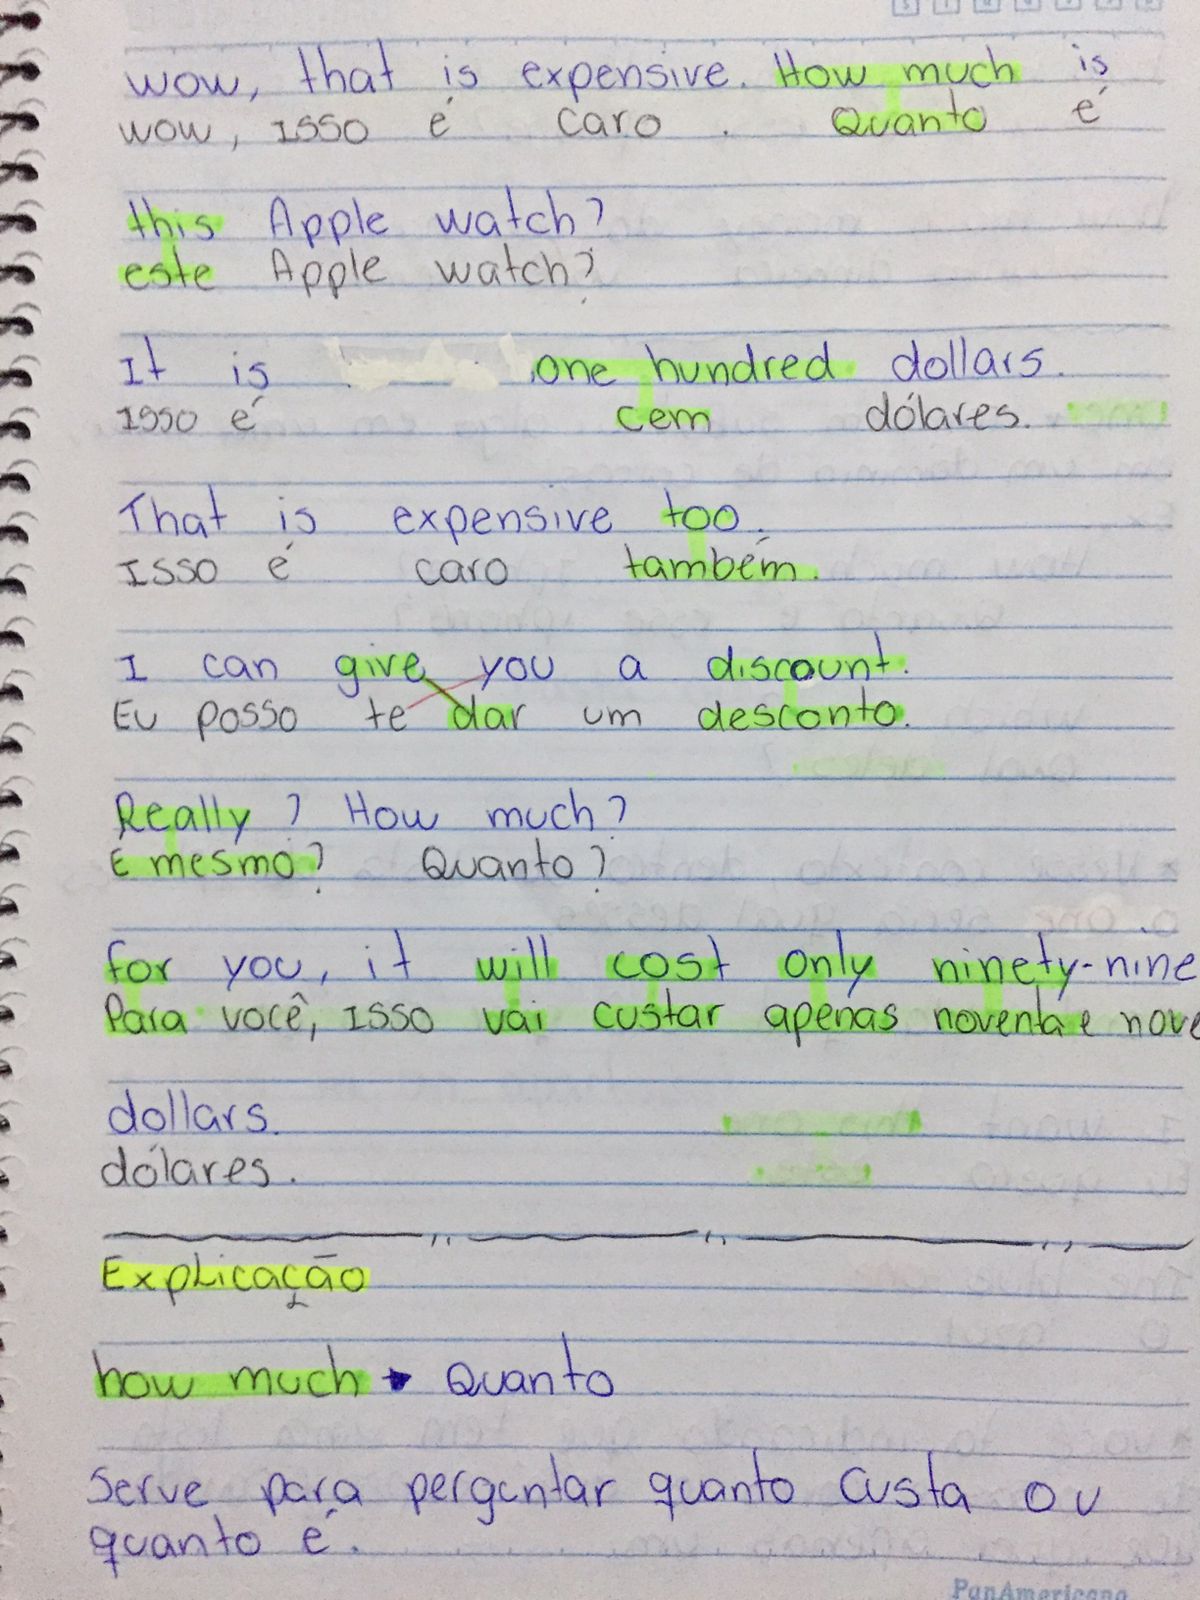 wow, that is expensive. How much is
wow, isso é caro. Quanto é
this Apple watch?
este Apple watch?
It is one hundred dollars.
Isso é cem dólares.
That is expensive too.
Isso é caro também.
I can give you a discount.
Eu posso te dar um desconto.
Really? How much?
É mesmo? Quanto?
for you, it will cost only ninety-nine
Para você, isso vai custar apenas noventa e nove
dollars.
dólares.
Explicação
how much → Quanto
Serve para perguntar quanto custa ou
quanto é.
PanAmericana